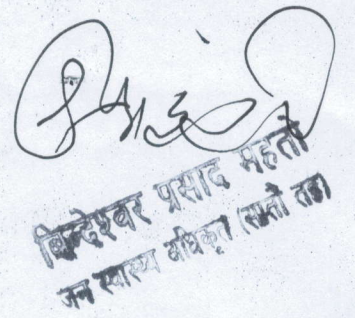 बिन्देश्वर प्रसाद महतो
जन स्वास्थ्य अधिकृत (सातौं तह)